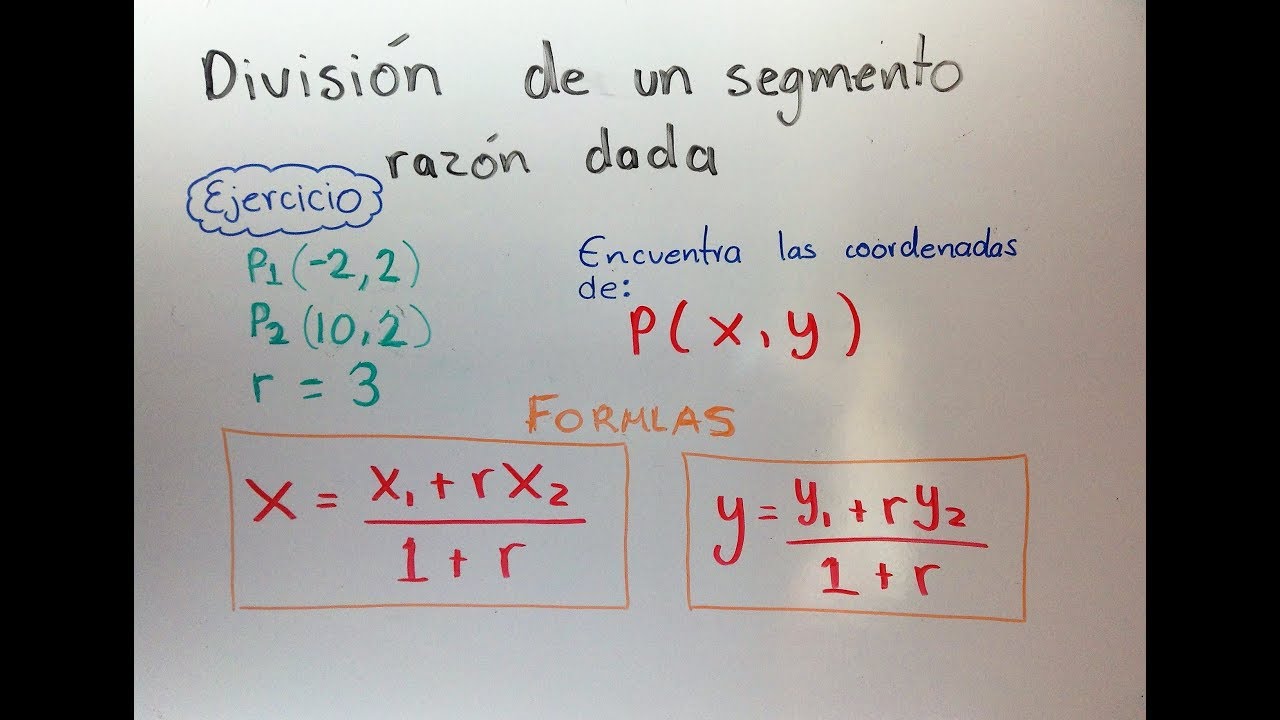 División de un segmento
razón dada
Ejercicio
P₁(-2,2)
P₂(10,2)
r = 3
Encuentra las coordenadas
de:
P(x,y)
FORMLAS
x = x₁ + rx₂ / 1 + r
y = y₁ + ry₂ / 1 + r